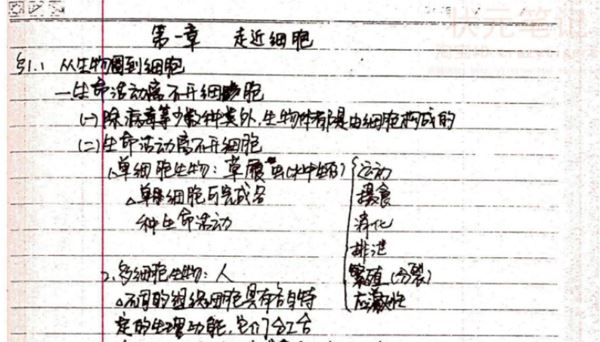 状元笔记
第一章 走近细胞
§1.1 从生物圈到细胞
一.生命活动离不开细胞
(一)除病毒等少数种类外,生物体都是由细胞构成的
(二)生命活动离不开细胞
1.单细胞生物:草履虫(水中生的) 运动
△单细胞可完成各 摄食
种生命活动 消化
排泄
2.多细胞生物:人 繁殖(分裂)
△不同的组织细胞具有各自特 应激性
定的生理功能,它们分工合